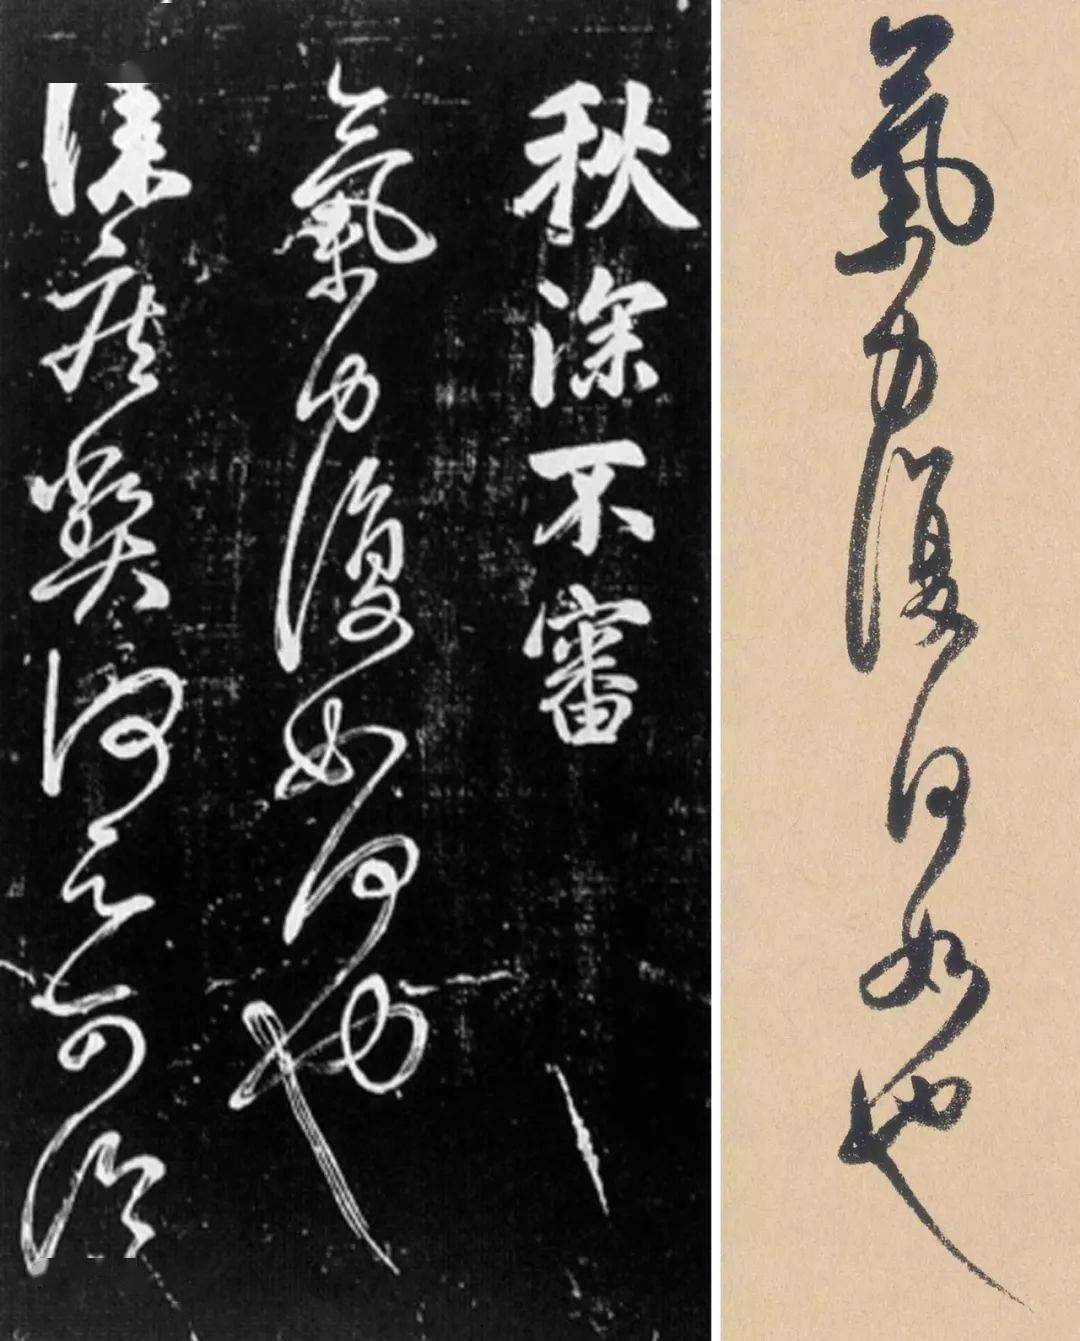 秋深不審
氣力復如何也
疾 何 可
氣力復何如也